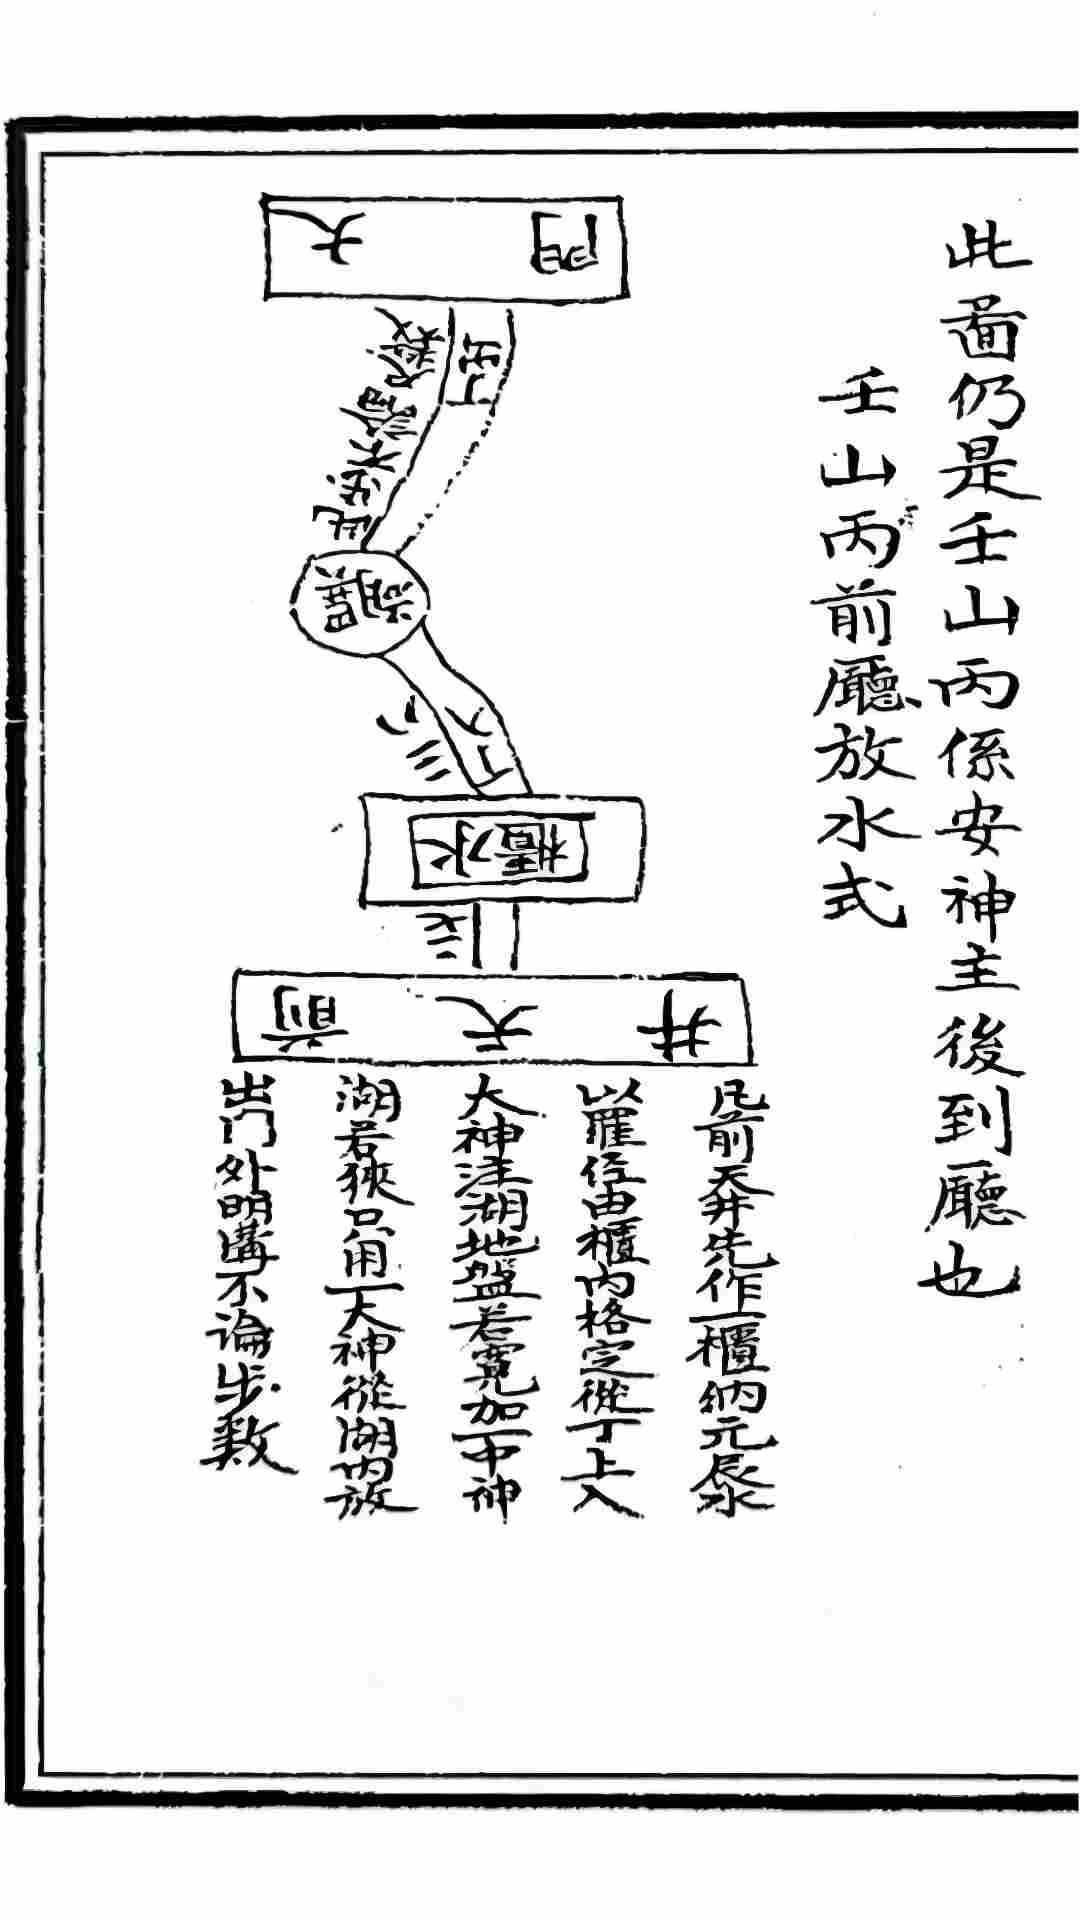 此啚仍是壬山丙係安神主後到廳也
壬山丙前廳放水式
大門
丁出
此步不論尺數
湖
丁入
櫃水
前天井
凡前天井先作一櫃納元辰水
以羅经由櫃內格定從丁上入
大神注湖地盤若寬加一中神
湖若狹只用一大神從湖內放
出門外明溝不論步数